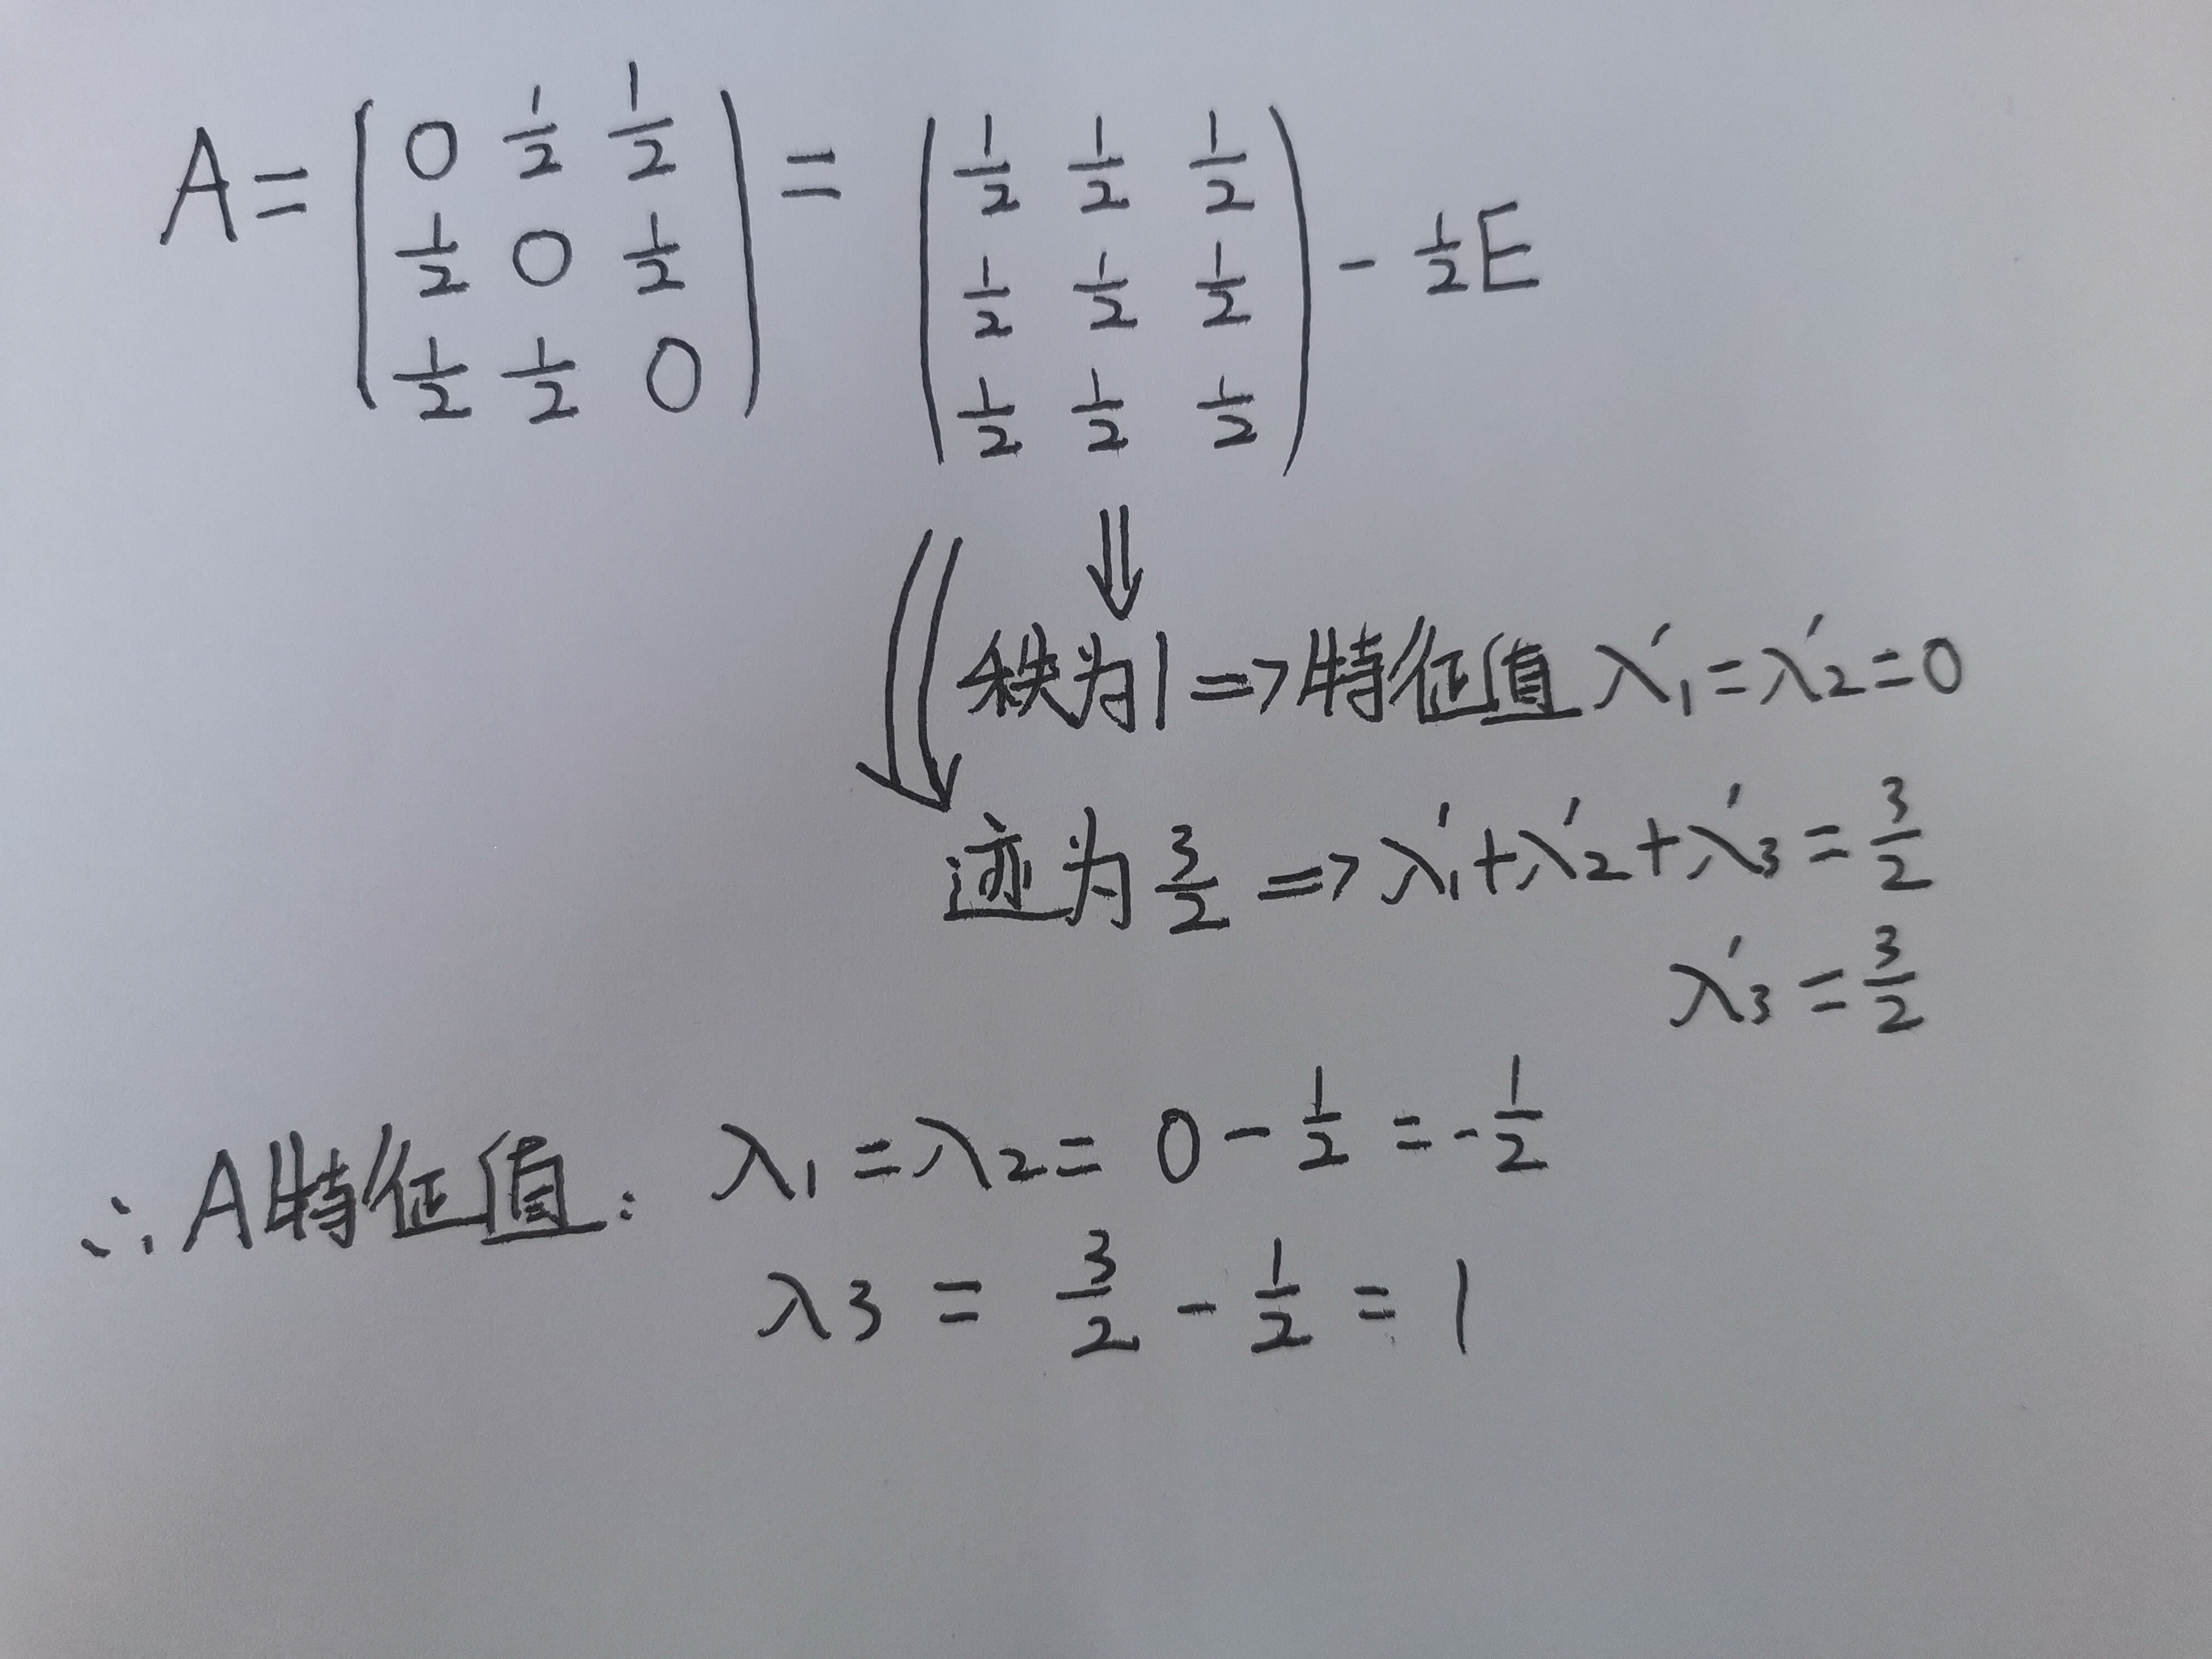 A = ( 0 1/2 1/2 ) = ( 1/2 1/2 1/2 ) - 1/2 E
( 1/2 0 1/2 ) ( 1/2 1/2 1/2 )
( 1/2 1/2 0 ) ( 1/2 1/2 1/2 )
⇓ ⇓
秩为1 => 特征值 λ'₁ = λ'₂ = 0
迹为 3/2 => λ'₁ + λ'₂ + λ'₃ = 3/2
λ'₃ = 3/2
∴ A特征值: λ₁ = λ₂ = 0 - 1/2 = - 1/2
λ₃ = 3/2 - 1/2 = 1